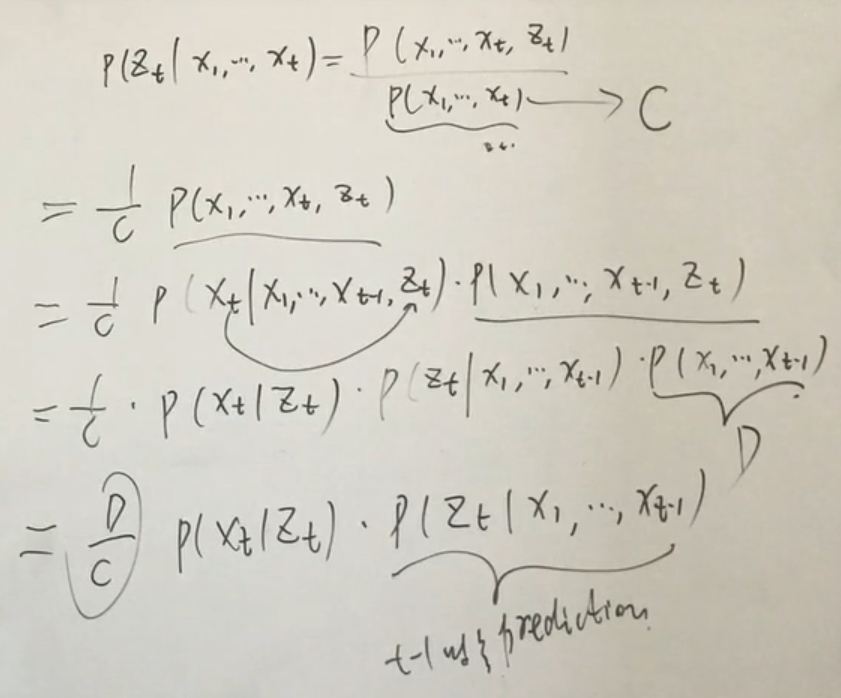 P(Z_t | x_1, ..., x_t) = P(x_1, ..., x_t, z_t) / P(x_1, ..., x_t) → C
= 1/C P(x_1, ..., x_t, z_t)
= 1/C P(x_t | x_1, ..., x_{t-1}, z_t) · P(x_1, ..., x_{t-1}, z_t)
= 1/C · P(x_t | z_t) · P(z_t | x_1, ..., x_{t-1}) · P(x_1, ..., x_{t-1})
D
= D/C P(x_t | z_t) · P(z_t | x_1, ..., x_{t-1})
t-1 prediction